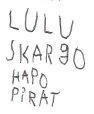 LULU
SKARGO
HAPO
PiRAT